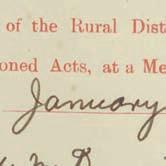 of the Rural Dist
oned Acts, at a Me
January